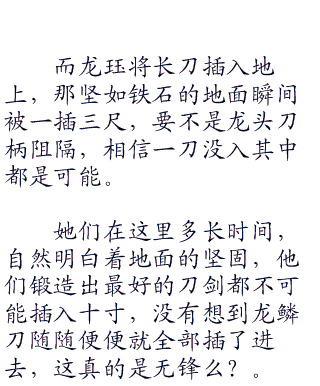 而龙珏将长刀插入地
上，那坚如铁石的地面瞬间
被一插三尺，要不是龙头刀
柄阻隔，相信一刀没入其中
都是可能。
她们在这里多长时间，
自然明白着地面的坚固，他
们锻造出最好的刀剑都不可
能插入十寸，没有想到龙鳞
刀随随便便就全部插了进
去，这真的是无锋么？。